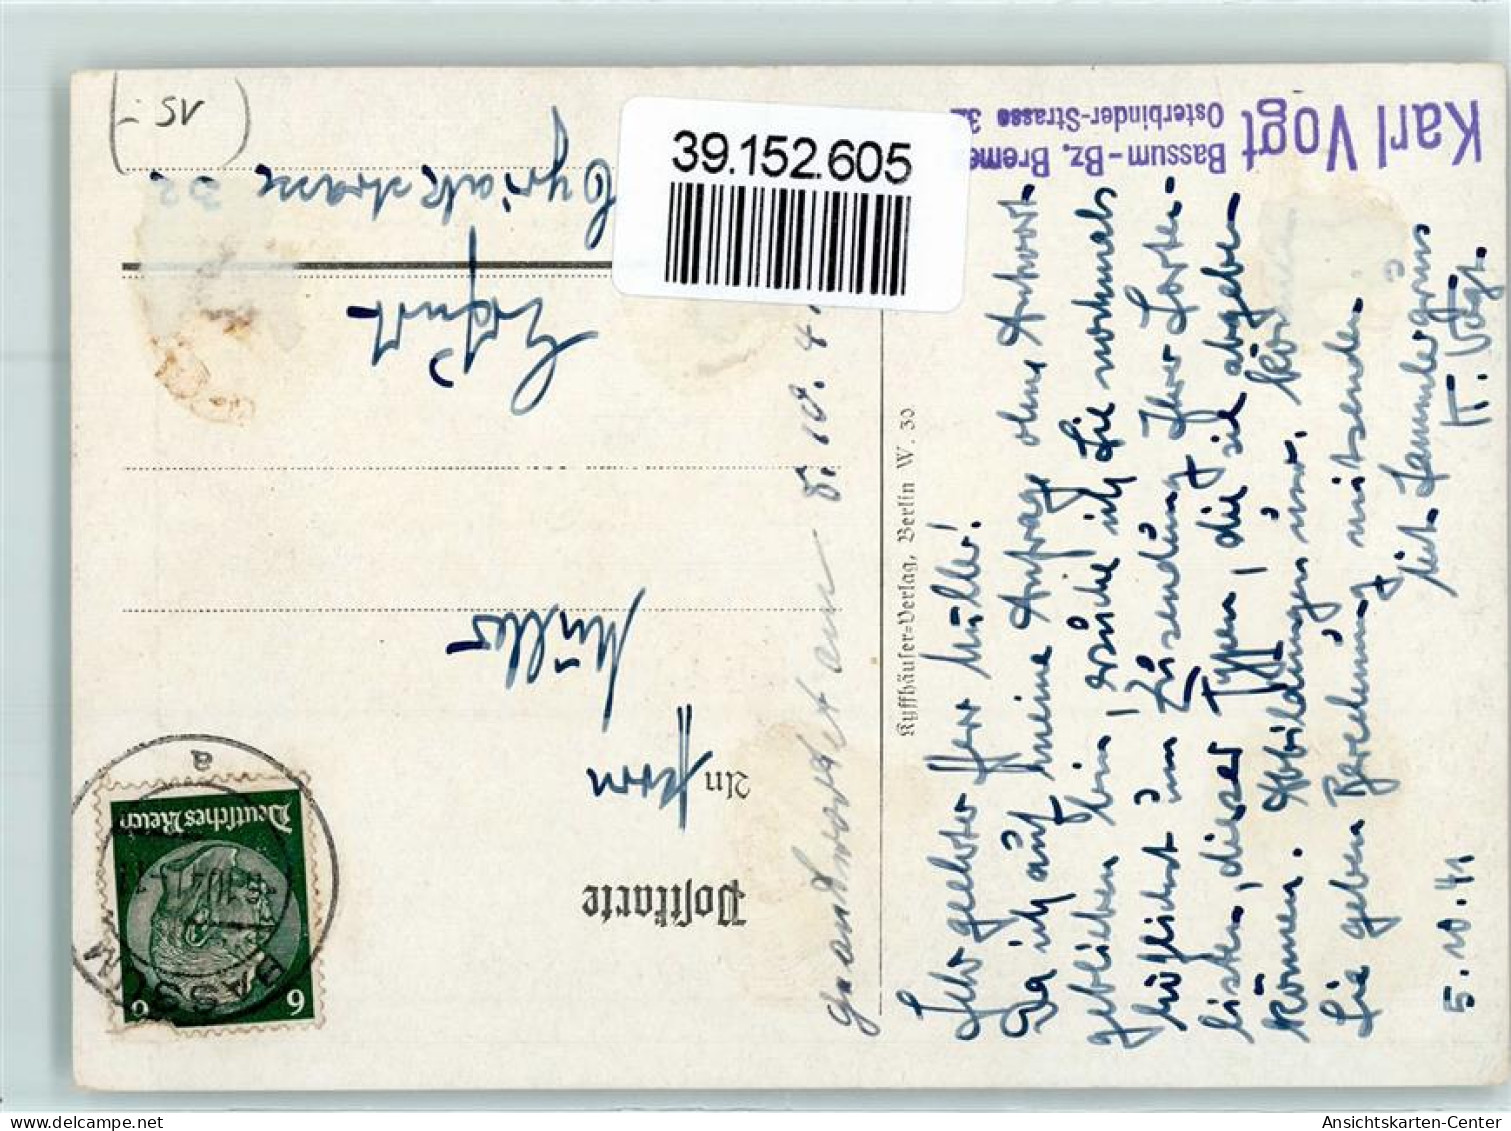 (-SV)
39.152.605
Karl Vogt
Bassum-Bz. Breme
Osterbinder-Strasse 32
Postkarte
An Herrn
Müller
Erfurt
Cyriakstrasse 32
Deutsches Reich
6 6
BASSUM
a
Kyffhäuser-Verlag, Berlin W. 30
geantwortet am 8. 10. 4
Sehr geehrter Herr Müller!
Da ich auf meine Anfrage ohne Antwort
geblieben bin, ersuche ich Sie nochmals
höflichst um Zusendung Ihrer Listen-
listen, dieser Typen, die Sie abgeben
können. Abbildungen usw. können
Sie geben Berechnung mitsenden.
Mit Sammlergruss
K. Vogt.
5. 10. 41
Ansichtskarten-Center